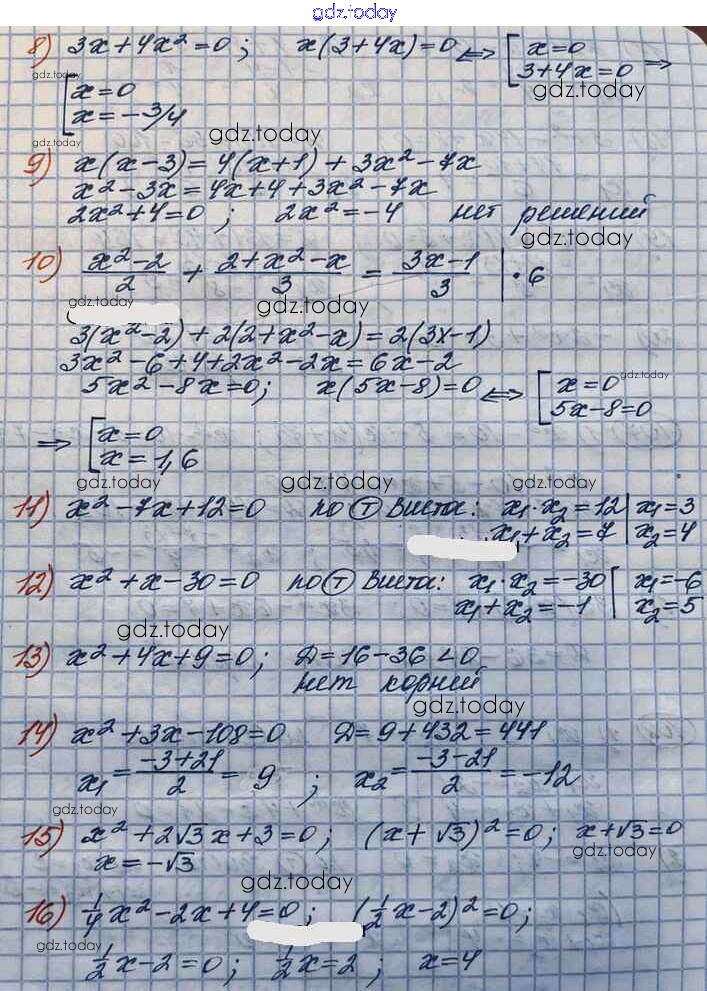 gdz.today
8) 3x+4x²=0; x(3+4x)=0 <=> [x=0
3+4x=0 =>
gdz.today
gdz.today
[x=0
x=-3/4
gdz.today
gdz.today
9) x(x-3)=4(x+1)+3x²-7x
x²-3x=4x+4+3x²-7x
2x²+4=0; 2x²=-4 нет решений
gdz.today
10) (x²-2)/2 + (2+x²-x)/3 = (3x-1)/3 | ·6
gdz.today
gdz.today
3(x²-2)+2(2+x²-x)=2(3x-1)
3x²-6+4+2x²-2x=6x-2
gdz.today
5x²-8x=0; x(5x-8)=0 <=> [x=0
5x-8=0
=> [x=0
x=1,6
gdz.today gdz.today gdz.today
11) x²-7x+12=0 по Ⓣ Виета: x₁·x₂=12 | x₁=3
x₁+x₂=7 | x₂=4
12) x²+x-30=0 по Ⓣ Виета: x₁·x₂=-30 [x₁=-6
x₁+x₂=-1 [x₂=5
gdz.today
13) x²+4x+9=0; Д=16-36<0
нет корний
gdz.today
14) x²+3x-108=0 Д=9+432=441
x₁=(-3+21)/2=9; x₂=(-3-21)/2=-12
gdz.today
15) x²+2√3x+3=0; (x+√3)²=0; x+√3=0
gdz.today
x=-√3
gdz.today
16) 1/4x²-2x+4=0; (1/2x-2)²=0;
gdz.today
1/2x-2=0; 1/2x=2; x=4